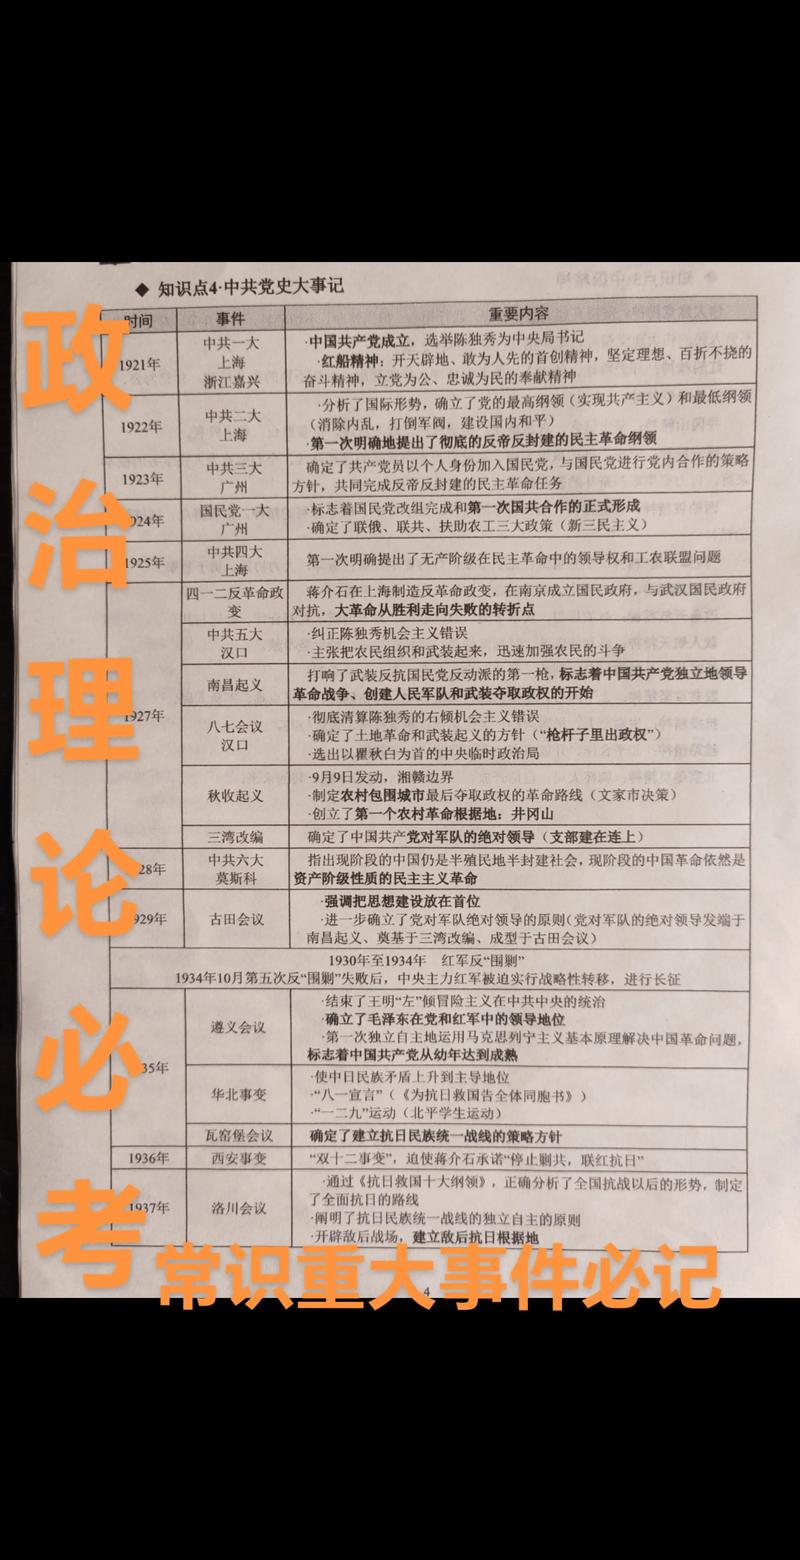 ◆ 知识点4·中共党史大事记
时间 事件 重要内容
1921年
中共一大
上海
浙江嘉兴
·中国共产党成立，选举陈独秀为中央局书记
·红船精神：开天辟地、敢为人先的首创精神，坚定理想、百折不挠的
奋斗精神，立党为公、忠诚为民的奉献精神
1922年
中共二大
上海
·分析了国际形势，确立了党的最高纲领（实现共产主义）和最低纲领
（消除内乱，打倒军阀，建设国内和平）
·第一次明确地提出了彻底的反帝反封建的民主革命纲领
1923年
中共三大
广州
确定了共产党员以个人身份加入国民党，与国民党进行党内合作的策略
方针，共同完成反帝反封建的民主革命任务
924年
国民党一大
广州
·标志着国民党改组完成和第一次国共合作的正式形成
·确定了联俄、联共、扶助农工三大政策（新三民主义）
1925年
中共四大
上海
第一次明确提出了无产阶级在民主革命中的领导权和工农联盟问题
1927年
四一二反革命政
变
蒋介石在上海制造反革命政变，在南京成立国民政府，与武汉国民政府
对抗，大革命从胜利走向失败的转折点
中共五大
汉口
·纠正陈独秀机会主义错误
·主张把农民组织和武装起来，迅速加强农民的斗争
南昌起义
打响了武装反抗国民党反动派的第一枪，标志着中国共产党独立地领导
革命战争、创建人民军队和武装夺取政权的开始
八七会议
汉口
·彻底清算陈独秀的右倾机会主义错误
·确定了土地革命和武装起义的方针（“枪杆子里出政权”）
·选出以瞿秋白为首的中央临时政治局
秋收起义
·9月9日发动，湘赣边界
·制定农村包围城市最后夺取政权的革命路线（文家市决策）
·创立了第一个农村革命根据地：井冈山
三湾改编
确定了中国共产党对军队的绝对领导（支部建在连上）
28年
中共六大
莫斯科
指出现阶段的中国仍是半殖民地半封建社会，现阶段的中国革命依然是
资产阶级性质的民主主义革命
929年
古田会议
·强调把思想建设放在首位
·进一步确立了党对军队绝对领导的原则（党对军队的绝对领导发端于
南昌起义、奠基于三湾改编、成型于古田会议）
1930年至1934年 红军反“围剿”
1934年10月第五次反“围剿”失败后，中央主力红军被迫实行战略性转移，进行长征
35年
遵义会议
·结束了王明“左”倾冒险主义在中共中央的统治
·确立了毛泽东在党和红军中的领导地位
·第一次独立自主地运用马克思列宁主义基本原理解决中国革命问题，
标志着中国共产党从幼年达到成熟
华北事变
·使中日民族矛盾上升到主导地位
·“八一宣言”（《为抗日救国告全体同胞书》）
·“一二九”运动（北平学生运动）
瓦窑堡会议
确定了建立抗日民族统一战线的策略方针
1936年
西安事变
“双十二事变”，迫使蒋介石承诺“停止剿共，联红抗日”
1937年
洛川会议
·通过《抗日救国十大纲领》，正确分析了全国抗战以后的形势，制定
了全面抗日的路线
·阐明了抗日民族统一战线的独立自主的原则
·开辟敌后战场，建立敌后抗日根据地
4
政治理论必考
常识重大事件必记